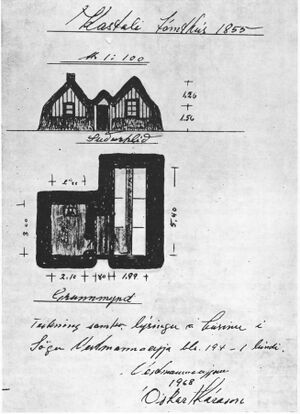 Kastali tómthús 1855
M. 1:100
1.20
1.50
Suðurhlið
2.00
3.00
5.40
2.10
80
1.99
Grunnmynd
Teikning samkv. lýsingu á húsinu í
Sögu Vestmannaeyja bls. 194 - 1 bindi.
Vestmannaeyjum
1968
Óskar Kárason